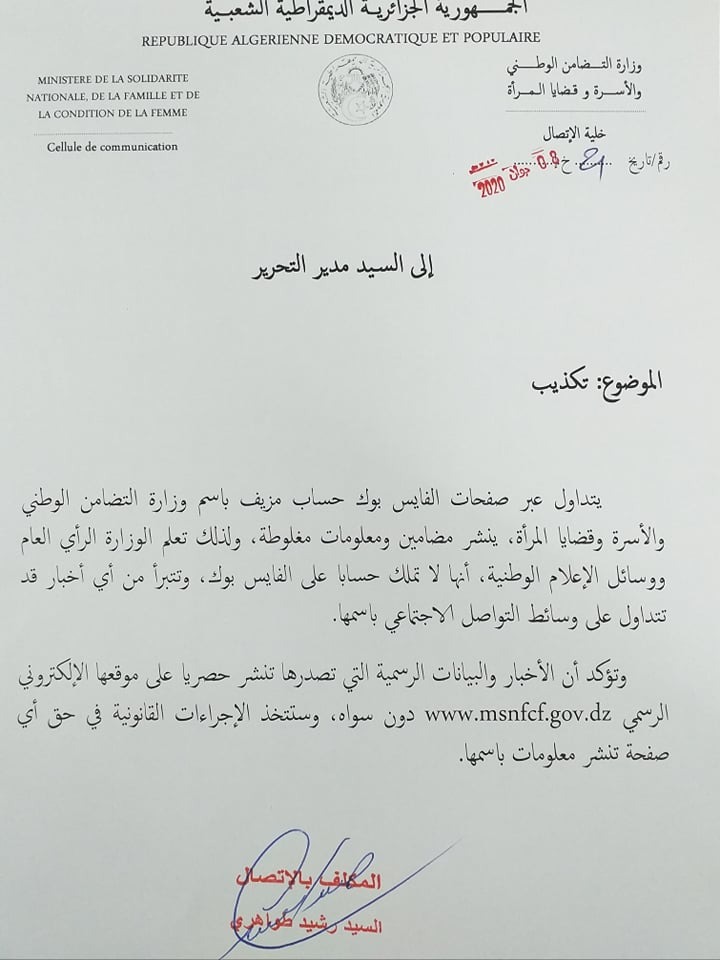 الجمهورية الجزائرية الديمقراطية الشعبية
REPUBLIQUE ALGERIENNE DEMOCRATIQUE ET POPULAIRE
MINISTERE DE LA SOLIDARITE
NATIONALE, DE LA FAMILLE ET DE
LA CONDITION DE LA FEMME
Cellule de communication
وزارة التضامن الوطني
والأسرة و قضايا المرأة
خلية الإتصال
رقم/تاريخ ... خ ... 08 جوان 2020
إلى السيد مدير التحرير
الموضوع: تكذيب
يتداول عبر صفحات الفايس بوك حساب مزيف باسم وزارة التضامن الوطني
والأسرة وقضايا المرأة، ينشر مضامين ومعلومات مغلوطة، ولذلك تعلم الوزارة الرأي العام
ووسائل الإعلام الوطنية، أنها لا تملك حسابا على الفايس بوك، وتتبرأ من أي أخبار قد
تتداول على وسائط التواصل الاجتماعي باسمها.
وتؤكد أن الأخبار والبيانات الرسمية التي تصدرها تنشر حصريا على موقعها الإلكتروني
الرسمي www.msnfcf.gov.dz دون سواه، وستتخذ الإجراءات القانونية في حق أي
صفحة تنشر معلومات باسمها.
المكلف بالإتصال
السيد رشيد طواهري